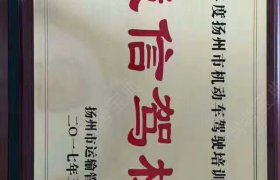 度扬州市机动车驾驶培训
信驾
扬州市运输管
二〇一七年